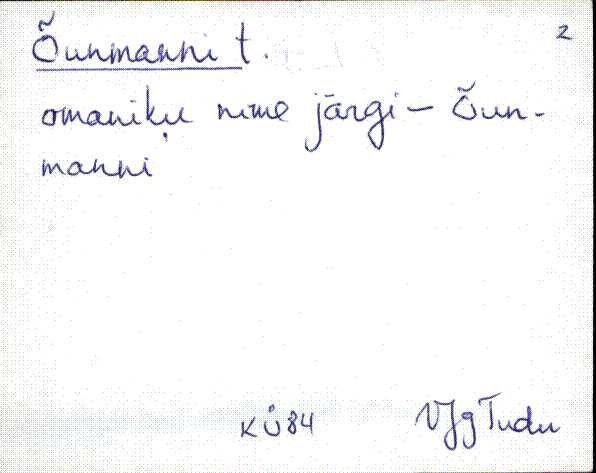 Õunmanni t.
2
omaniku nime järgi – Õun-
manni
KÜ84 VJg Tudu